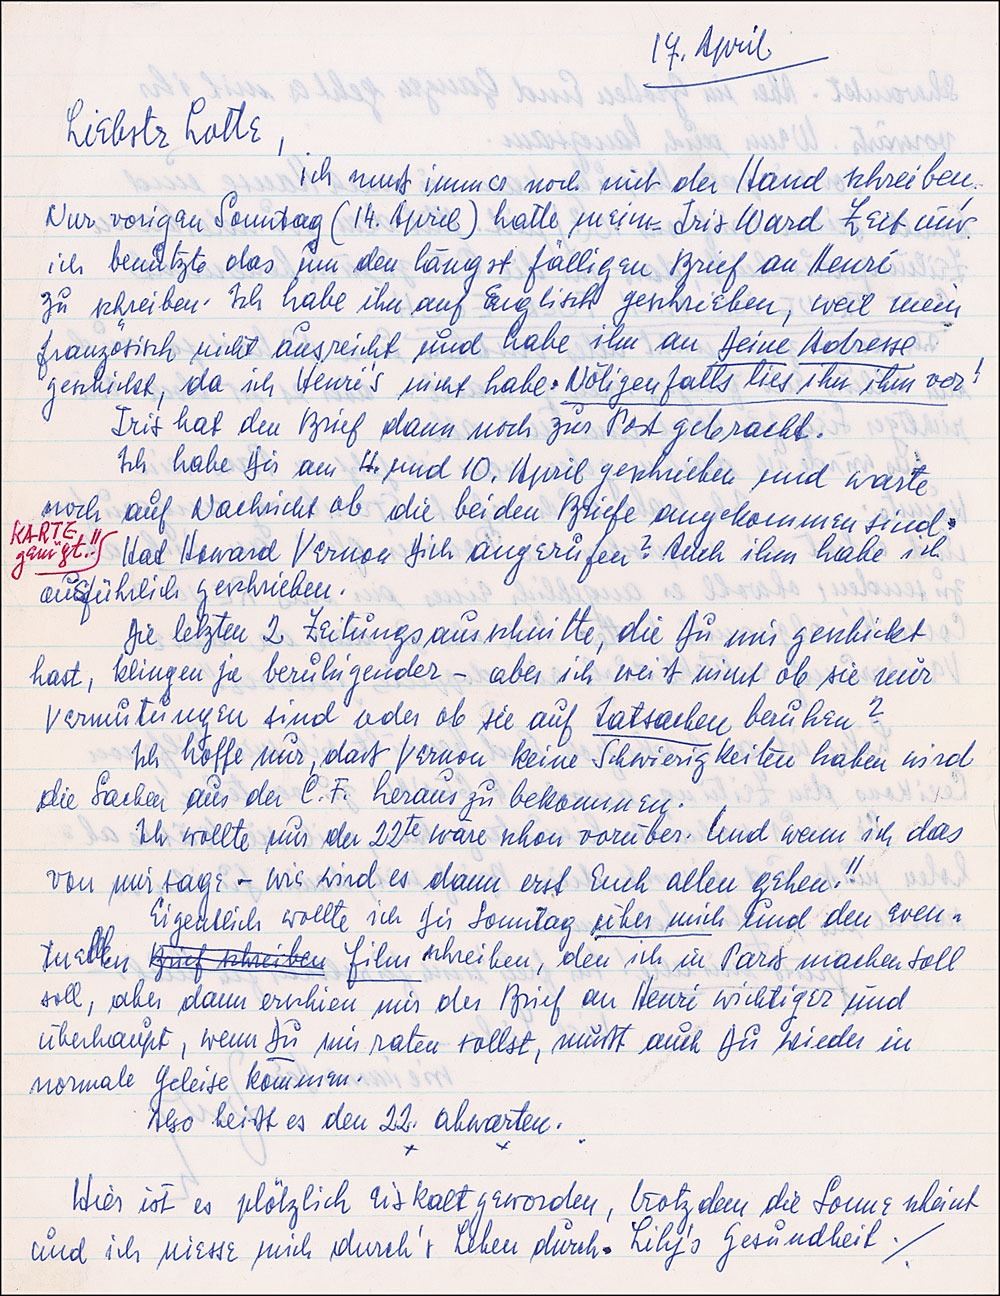 17. April
Liebste Lotte,
ich muss immer noch mit der Hand schreiben.
Nur vorigen Sonntag (14. April) hatte meine Iris Ward Zeit und
ich benützte das um den längst fälligen Brief an Henri
zu schreiben. Ich habe ihn auf Englisch geschrieben, weil mein
französisch nicht ausreicht und habe ihn an Deine Adresse
geschickt, da ich Henri's nicht habe. Nötigenfalls lies ihn ihm vor!
Iris hat den Brief dann noch zur Post gebracht.
Ich habe Dir am 4. und 10. April geschrieben und warte
noch auf Nachricht ob die beiden Briefe angekommen sind.
KARTE
genügt.!!
Hat Howard Vernon Dich angerufen? Auch ihm habe ich
ausführlich geschrieben.
Die letzten 2 Zeitungsausschnitte, die Du mir geschickt
hast, klingen ja beruhigender – aber ich weiss nicht ob sie nur
Vermutungen sind oder ob sie auf Tatsachen beruhen?
Ich hoffe nur, dass Vernon keine Schwierigkeiten haben wird
die Sachen aus der C.F. herauszubekommen.
Ich wollte nur der 22te wäre schon vorüber. Und wenn ich das
von mir sage – wie wird es dann erst Euch allen gehen!!
Eigentlich wollte ich Dir Sonntag über mich und den even-
tuellen Brief schreiben Film schreiben, den ich in Paris machen soll
soll, aber dann erschien mir der Brief an Henri wichtiger und
überhaupt, wenn Du mir raten sollst, musst auch Du wieder in
normale Geleise kommen.
Also heisst es den 22. abwarten.
x x
Hier ist es plötzlich eiskalt geworden, trotzdem die Sonne scheint
und ich niesse mich durch's Leben durch. Lily's Gesundheit ./